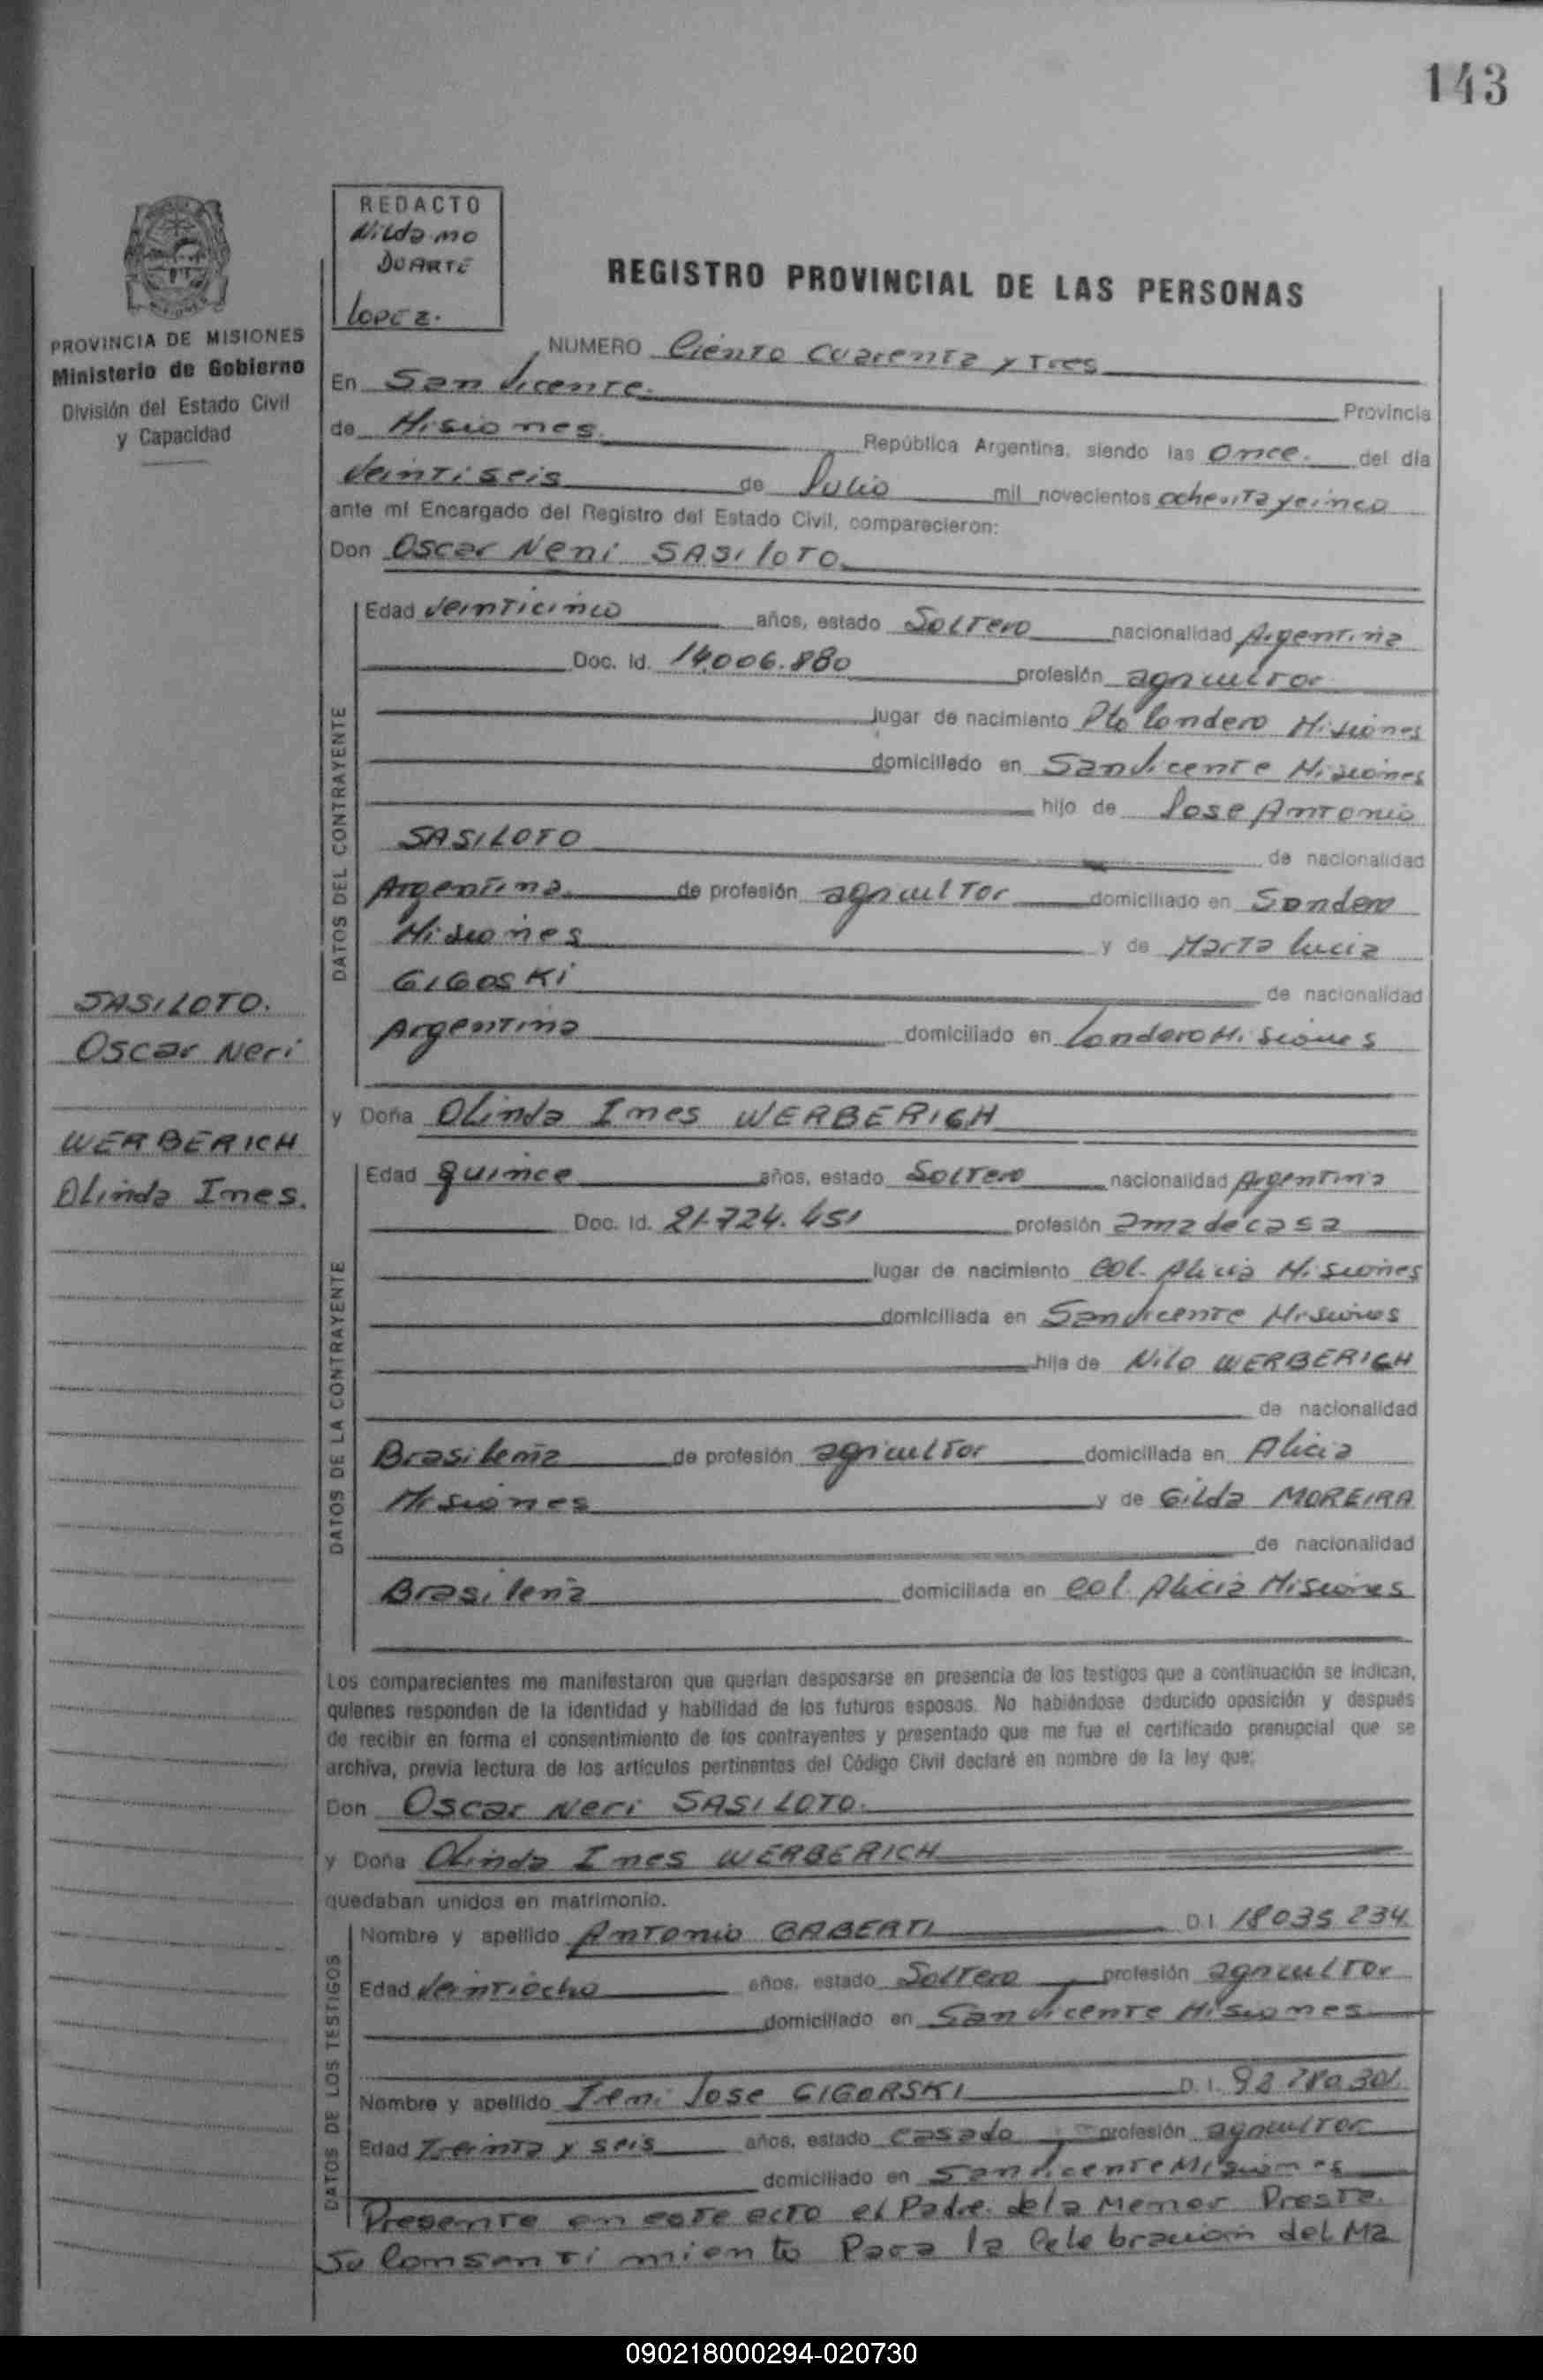 143
REDACTO
Nildo mo
DUARTE
LOPEZ.
REGISTRO PROVINCIAL DE LAS PERSONAS
PROVINCIA DE MISIONES
Ministerio de Gobierno
División del Estado Civil
y Capacidad
NUMERO Ciento cuarenta y Tres
En San Vicente. Provincia
de Misiones. República Argentina, siendo las Once. del día
Veintiseis de Julio mil novecientos ochenta y cinco
ante mí Encargado del Registro del Estado Civil, comparecieron:
Don Oscar Neni SASILOTO
DATOS DEL CONTRAYENTE
Edad Veinticinco años, estado Soltero nacionalidad Argentina
Doc. Id. 14.006.880 profesión agricultor
lugar de nacimiento Pto Londero Misiones
domiciliado en San Vicente Misiones
hijo de Jose Antonio
SASILOTO de nacionalidad
Argentina de profesión agricultor domiciliado en Londero
Misiones y de Marta Lucia
GIGOSKI de nacionalidad
Argentina domiciliado en Londero Misiones
SASILOTO.
Oscar Neri
WERBERICH
Olinda Ines.
y Doña Olinda Ines WERBERICH
DATOS DE LA CONTRAYENTE
Edad quince años, estado Soltero nacionalidad Argentina
Doc. Id. 21.724.451 profesión ama de casa
lugar de nacimiento Col. Alicia Misiones
domiciliada en San Vicente Misiones
hija de Nilo WERBERICH
de nacionalidad
Brasileña de profesión agricultor domiciliada en Alicia
Misiones y de Gilda MOREIRA
de nacionalidad
Brasileña domiciliada en Col. Alicia Misiones
Los comparecientes me manifestaron que querían desposarse en presencia de los testigos que a continuación se indican,
quienes responden de la identidad y habilidad de los futuros esposos. No habiéndose deducido oposición y después
de recibir en forma el consentimiento de los contrayentes y presentado que me fue el certificado prenupcial que se
archiva, previa lectura de los artículos pertinentes del Código Civil declaré en nombre de la ley que:
Don Oscar Neri SASILOTO.
y Doña Olinda Ines WERBERICH
quedaban unidos en matrimonio.
DATOS DE LOS TESTIGOS
Nombre y apellido Antonio D.I. 18035 234
Edad Veintiocho años, estado Soltero profesión agricultor
domiciliado en San Vicente Misiones
Nombre y apellido Jose GIGORSKI D.I.
Edad Treinta y seis años, estado casado profesión agricultor
domiciliado en San Vicente Misiones
Presente en este acto el Padre de la Menor Presta
Su Consentimiento Para la Celebracion del Ma
090218000294-020730